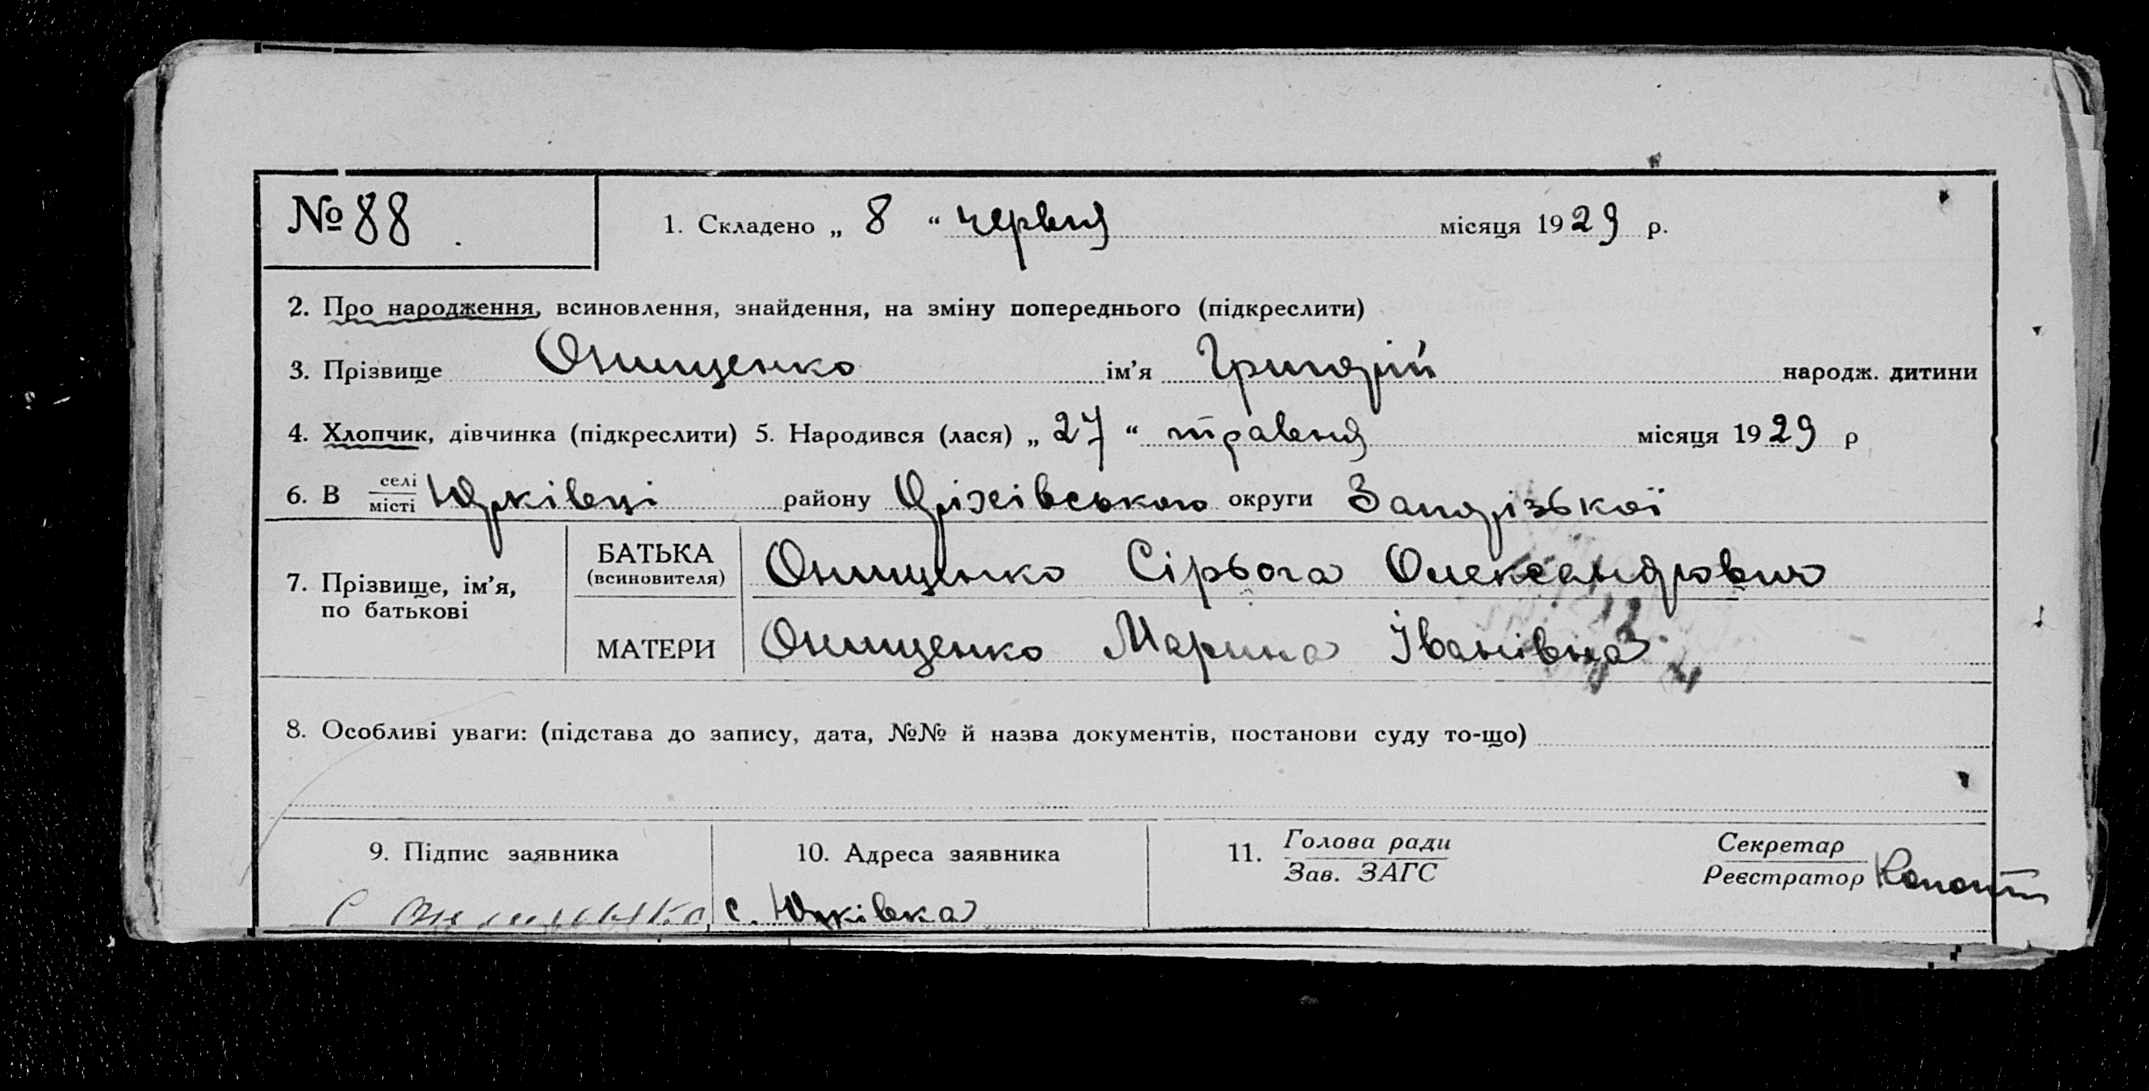 № 88 1. Складено „ 8 “ червня місяця 1929 р.
2. Про народження, всиновлення, знайдення, на зміну попереднього (підкреслити)
3. Прізвище Онищенко ім’я Григорій народж. дитини
4. Хлопчик, дівчинка (підкреслити) 5. Народився (лася) „ 27 “ травня місяця 1929 р
6. В селі
місті Юрківці району Оріхівського округи Запорізької
7. Прізвище, ім’я,
по батькові
БАТЬКА
(всиновителя) Онищенко Сірьога Олександрович
МАТЕРИ Онищенко Марина Іванівна
8. Особливі уваги: (підстава до запису, дата, №№ й назва документів, постанови суду то-що)
9. Підпис заявника 10. Адреса заявника 11. Голова ради
Зав. ЗАГС Секретар
Реєстратор
с. Юрківка